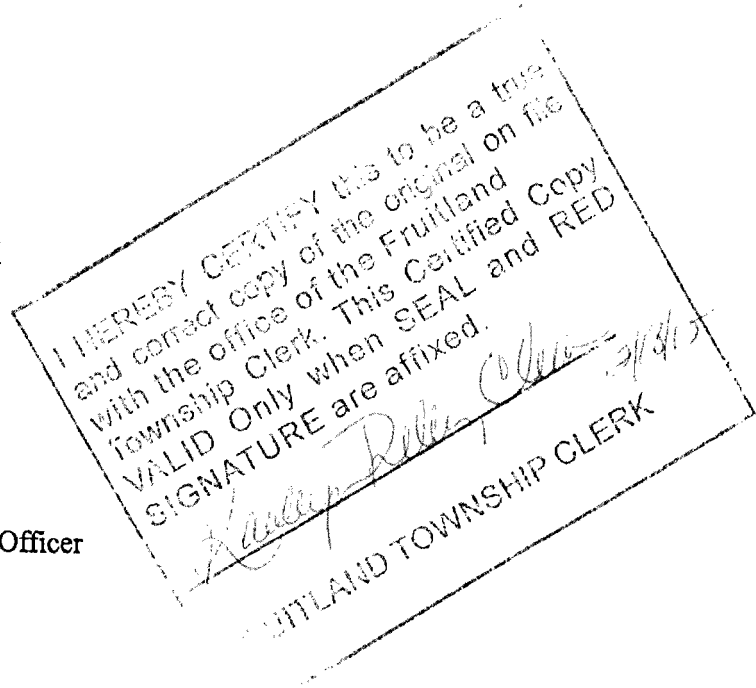 I HEREBY CERTIFY this to be a true
and correct copy of the original on file
with the office of the Fruitland
Township Clerk. This Certified Copy
VALID Only when SEAL and RED
SIGNATURE are affixed.
UITLAND TOWNSHIP CLERK
Officer